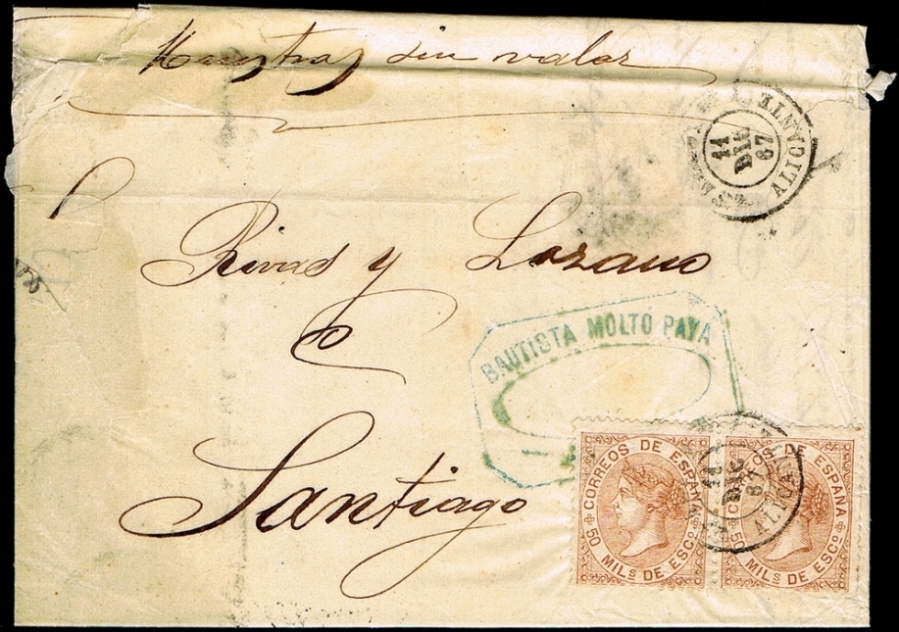 Muestras sin valor
ALICANTE
11
DIC
67
Rivas y Lozano
BAUTISTA MOLTÓ PAYA
Santiago
CORREOS DE ESPAÑA
50 MILS DE ESCO
11
DIC
67
ALICAN
CORREOS DE ESPAÑA
50 MILS DE ESCO